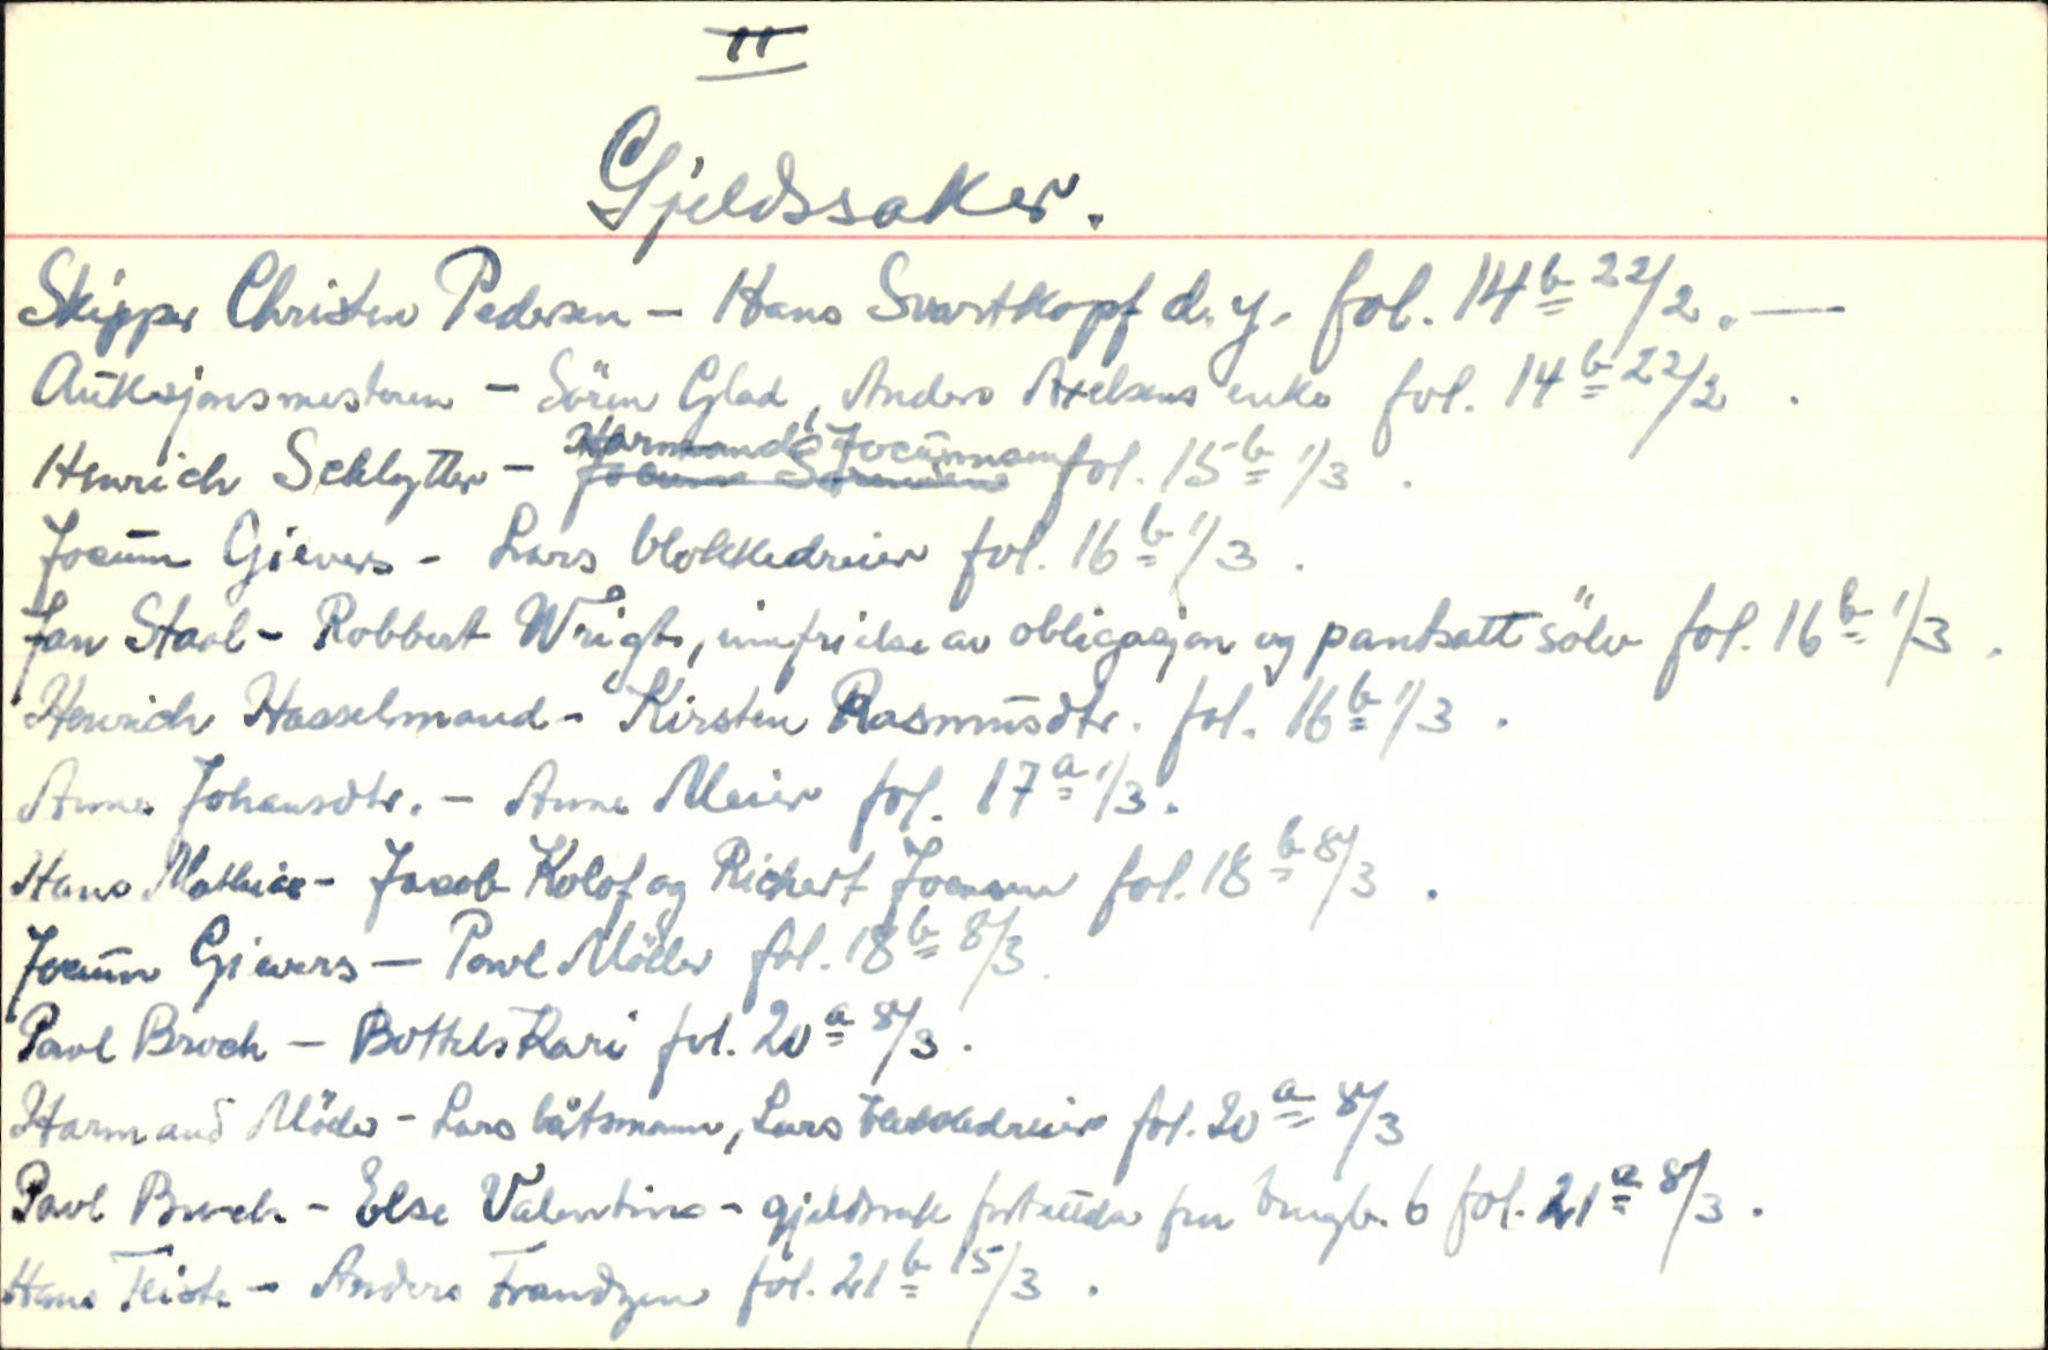 II
Gjeldssaker.
Skipper Christen Pedersen - Hans Svartkopf d. y. fol. 14b 22/2. —
Auksjonsmesteren - Sören Glad, Anders Axelsens enke fol. 14b 22/2.
Henrich Schlytter - Harmand Jocumsen fol. 15b 1/3.
Jocum Gievers - Lars blokkedreier fol. 16b 1/3.
Jan Staol - Robbert Wrigt, innfrielse av obligasjon og pantsatt sölv fol. 16b 1/3.
Henrich Hasselmand - Kirsten Rasmusdtr. fol. 16b 1/3.
Anne Johansdtr. - Anne Meier fol. 17a 1/3.
Hans Mathias - Jacob Kolof og Richert Jocumsen fol. 18b 8/3.
Jocum Gievers - Povl Möller fol. 18b 8/3.
Povl Broch - Bottels Kari fol. 20a 8/3.
Harmand Möller - Lars båtsmann, Lars blokkedreier fol. 20a 8/3
Povl Broch - Else Valentins - gjeldssak fol. 21a 8/3.
Hans Teiste - Anders Frandzen fol. 21b 15/3.